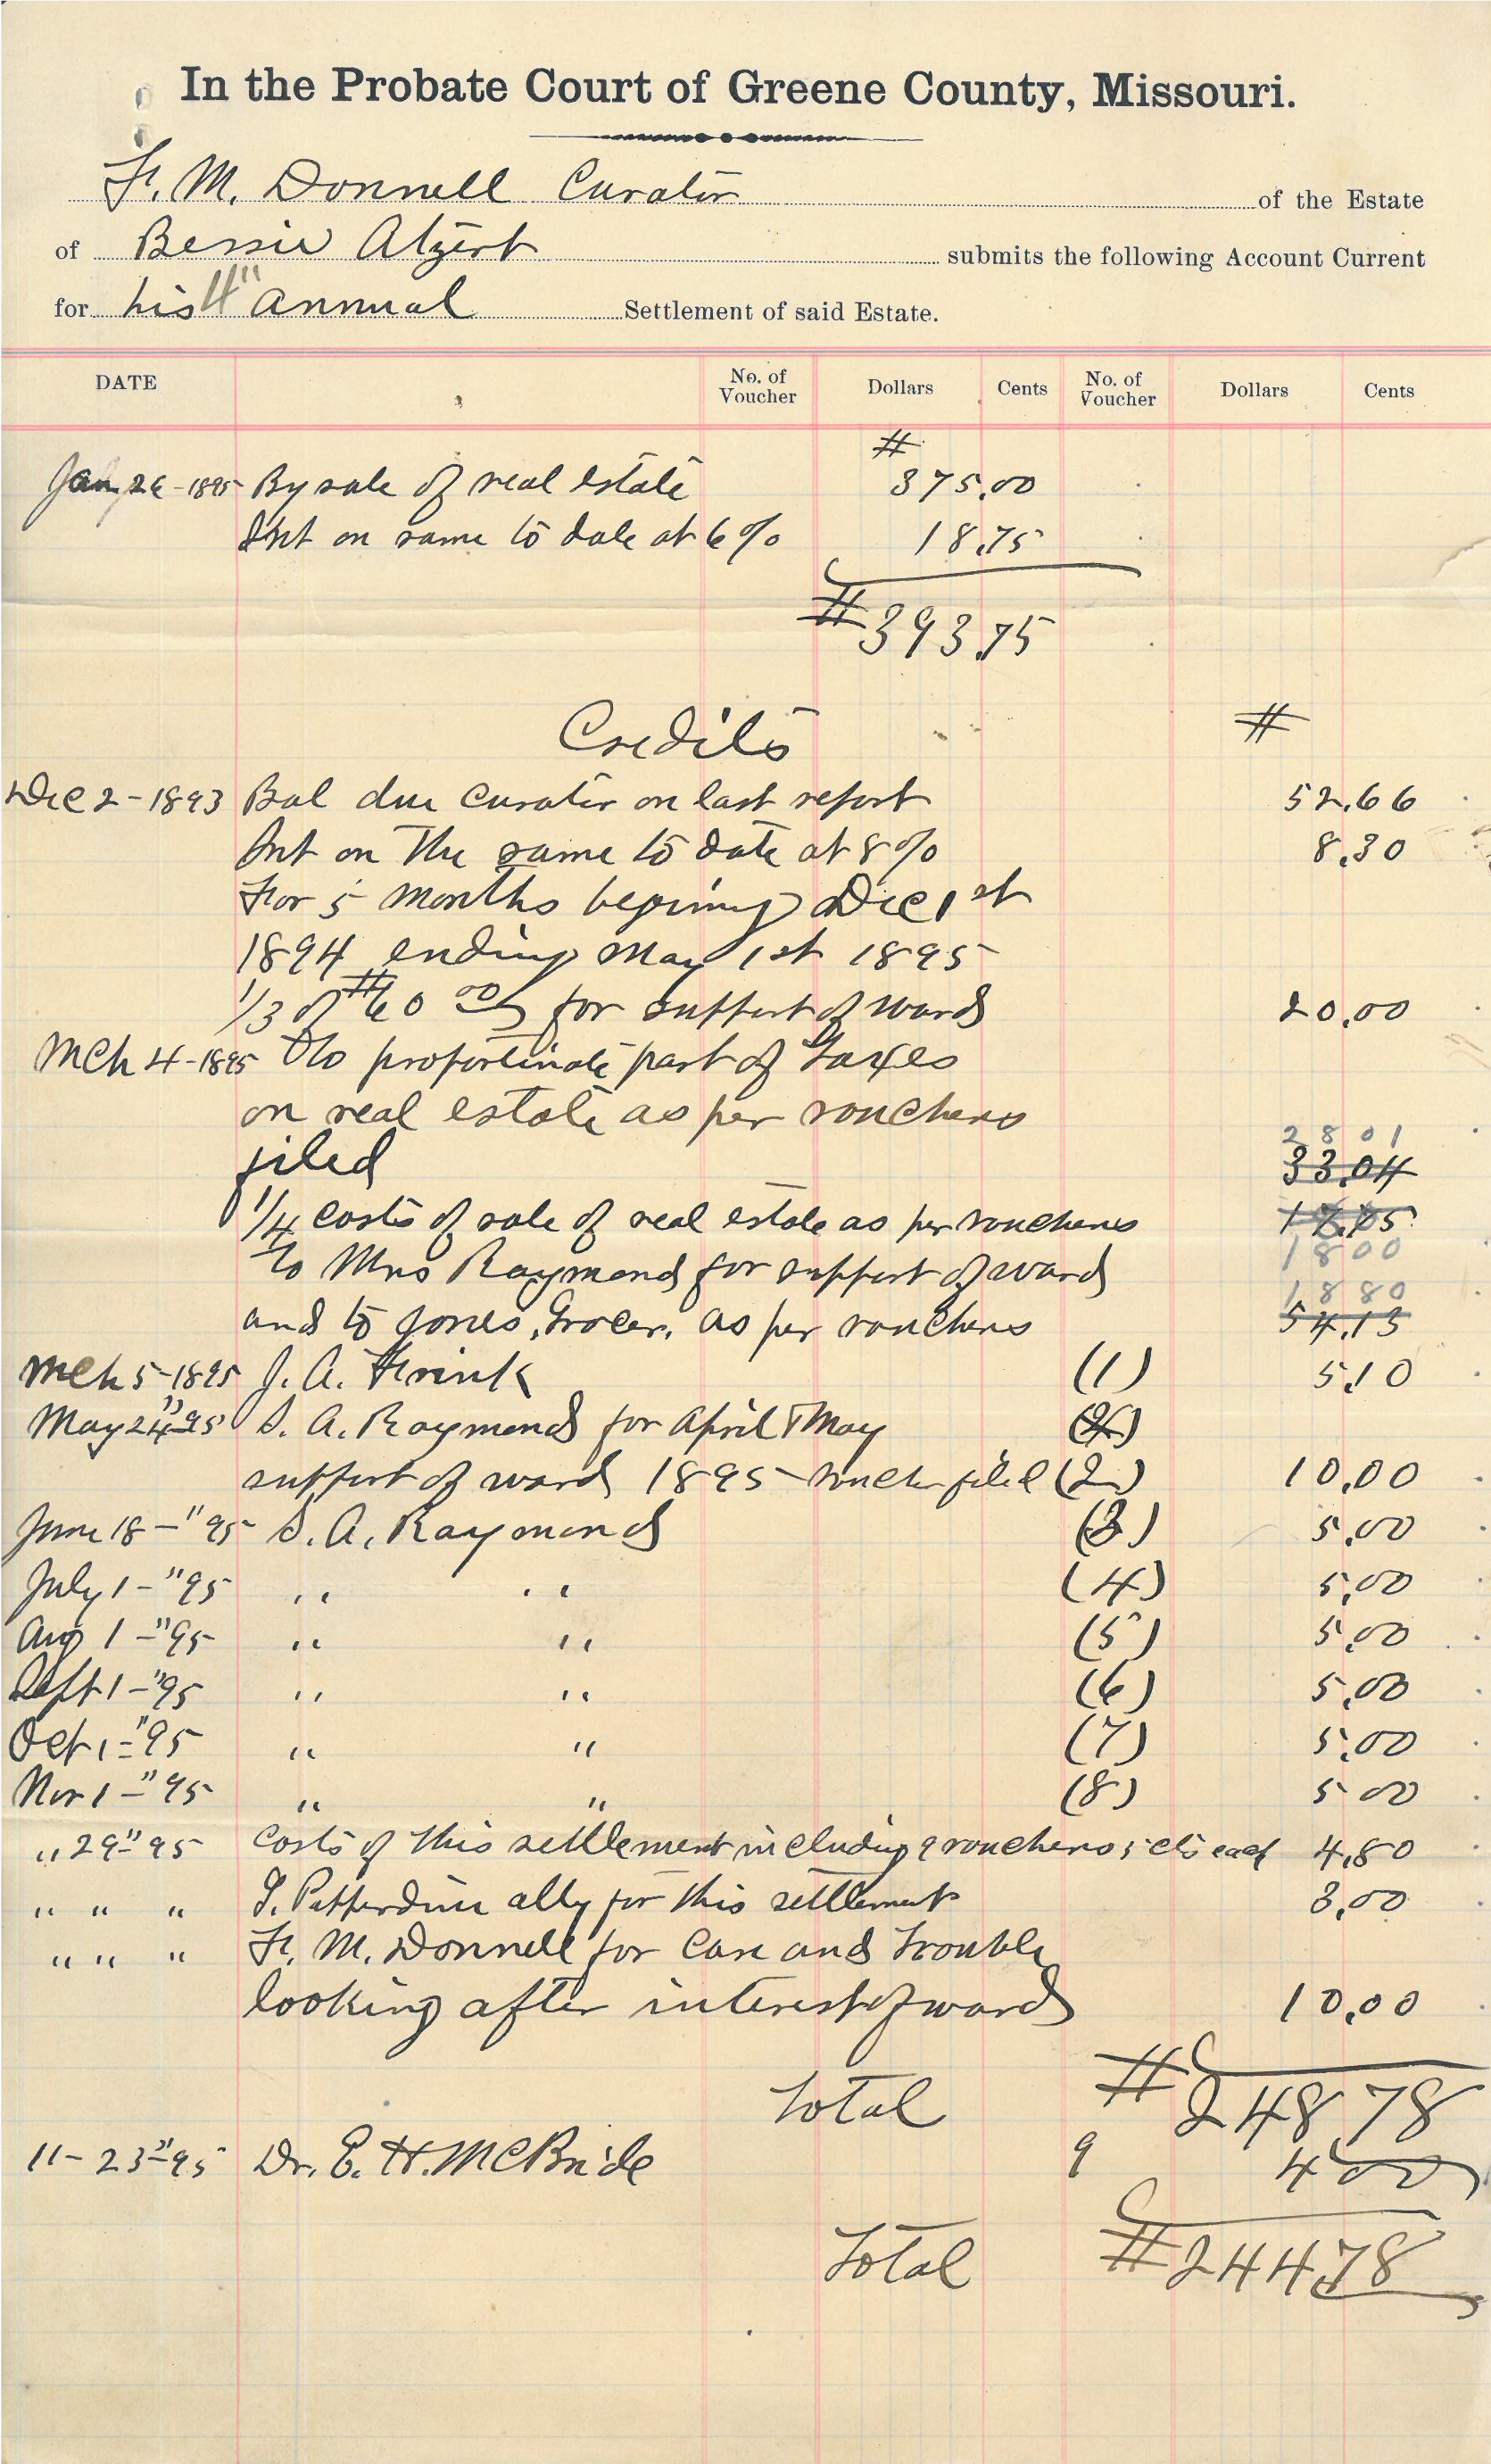 In the Probate Court of Greene County, Missouri.
F. M. Donnell Curator of the Estate
of Bessie Atzert submits the following Account Current
for his 4" annual Settlement of said Estate.
DATE No. of Voucher Dollars Cents No. of Voucher Dollars Cents
$
Jan 26-1895 By sale of real estate 375.00
Int on same to date at 6% 18.75
$393.75
Credits $
Dec 2-1893 Bal due curator on last report 52.66
Int on the same to date at 8% 8.30
For 5 months begining Dec 1st
1894 ending May 1st 1895
1/3 of $60 00 for support of ward 20.00
Mch 4-1895 To proportinate part of Taxes
on real estate as per vouchers
2801
filed 33.04
1/4 costs of sale of real estate as per vouchers
1800
To Mrs Raymond for support of ward
1880
and to Jones, Grocer, as per vouchers 54.13
Mch 5-1895 J. A. Frink (1) 5.10
May 24"-95 S. A. Raymond for April & May
support of ward 1895-voucher filed (2) 10.00
June 18-"95 S. A. Raymond (3) 5.00
July 1-"95 " " (4) 5.00
Aug 1-"95 " " (5) 5.00
Sept 1-"95 " " (6) 5.00
Oct 1-"95 " " (7) 5.00
Nov 1-"95 " " (8) 5 00
" 29"-95 costs of this settlement including 9 vouchers 5 cts each 4.80
" " " atty for this settlement 3.00
" " " F. M. Donnell for care and trouble
looking after interest of ward 10.00
Total $248 78
11-23"-95 Dr. E. H. McBride 9 4 00
Total $244.78